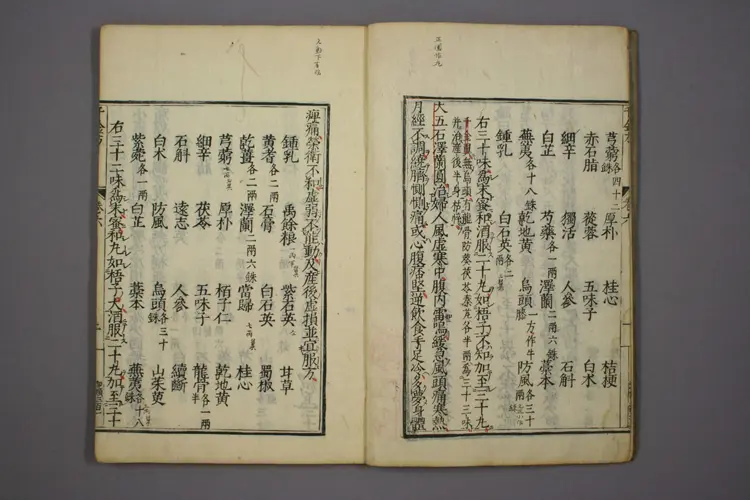 芎藭各四十二銖 厚朴 桂心 桔梗
赤石脂 蓯蓉 五味子 白朮
細辛 獨活 人參 石斛
白芷 芍藥各一兩 澤蘭二兩六銖 藁本
蕪荑各十八銖 乾地黃 烏頭一方作牛膝 防風各三十銖
鍾乳 白石英各二兩
右三十二味爲末蜜和酒服二十丸如梧子不知加至三十丸
大五石澤蘭圓治婦人風虛寒中腹內雷鳴緩急風頭痛寒熱
月經不調繞臍惻惻痛或心腹痞堅逆飲食手足冷多夢身體
痺痛榮衛不和虛弱不能動及產後虛損並宜服方
鍾乳 禹餘糧 紫石英 甘草
黃耆各二兩 石膏 白石英 蜀椒
乾薑各二兩 澤蘭二兩六銖 當歸 桂心
芎藭 厚朴 柏子仁 乾地黃
細辛 茯苓 五味子 龍骨各一兩半
石斛 遠志 人參 續斷
白朮 防風 烏頭各三十銖 山茱萸
紫菀各一兩 白芷 藁本 蕪荑各十八銖
右三十二味爲末蜜和丸如梧子大酒服二十丸加至三十
千金方 卷六